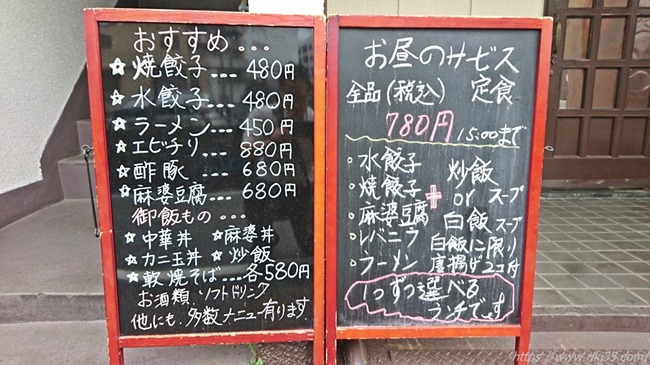 おすすめ...
☆焼餃子...480円
☆水餃子...480円
☆ラーメン...450円
☆エビチリ...880円
☆酢豚...680円
☆麻婆豆腐...680円
御飯もの...
☆中華丼 ☆麻婆丼
☆カニ玉丼 ☆炒飯
☆軟焼そば...各580円
お酒類.ソフトドリンク
他にも、多数メニュー有ります.
お昼のサービス
全品(税込) 定食
780円 15:00まで
○水餃子
○焼餃子
○麻婆豆腐
○レバニラ
○ラーメン
+
炒飯
or スープ
白飯 スープ
白飯に限り
唐揚げ2コ付
1つずつ選べる
ランチです
https://www.riki35.com